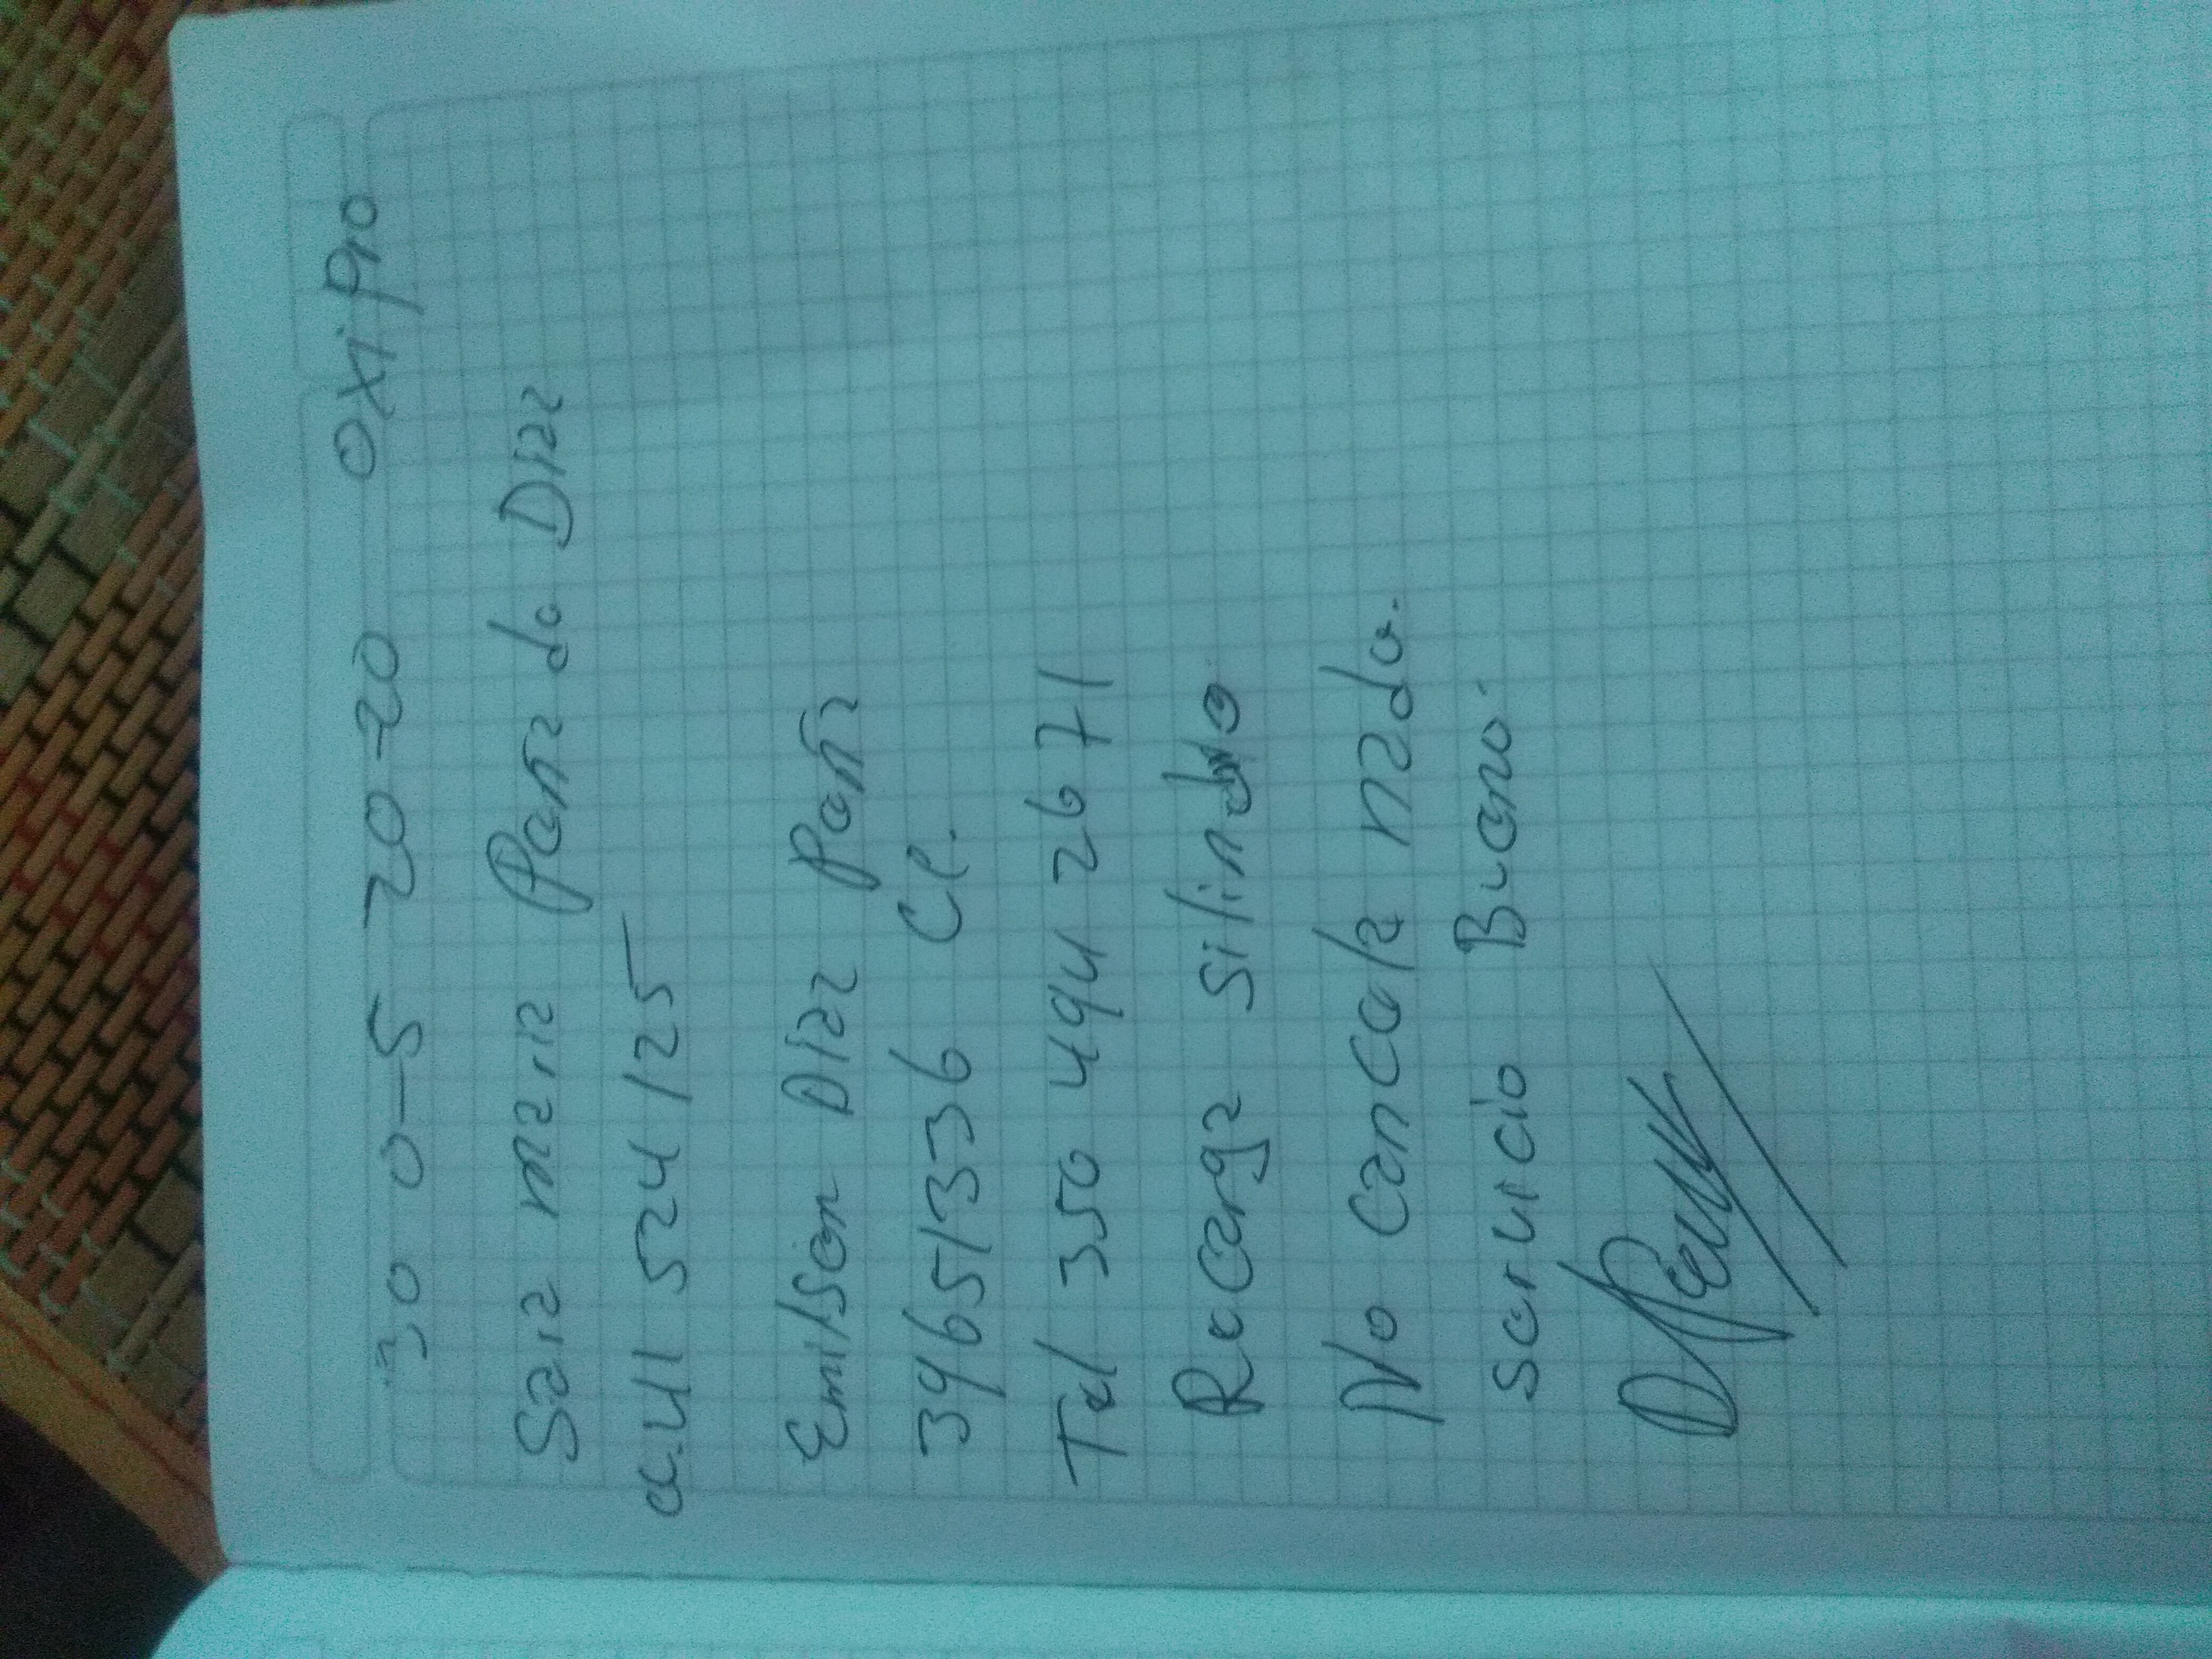 30-0-5 20-20 oxipro
Saia maria Peña de Diaz
cc. 41 524 125
Emilson Diaz Peña
39651336 Cl.
Tel 350 494 26 71
Recarga silindro
No cancela nada.
servicio Bueno.